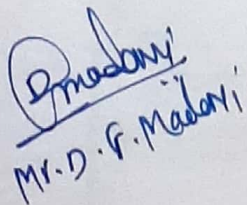 Gmadani
Mr. D. G. Madani